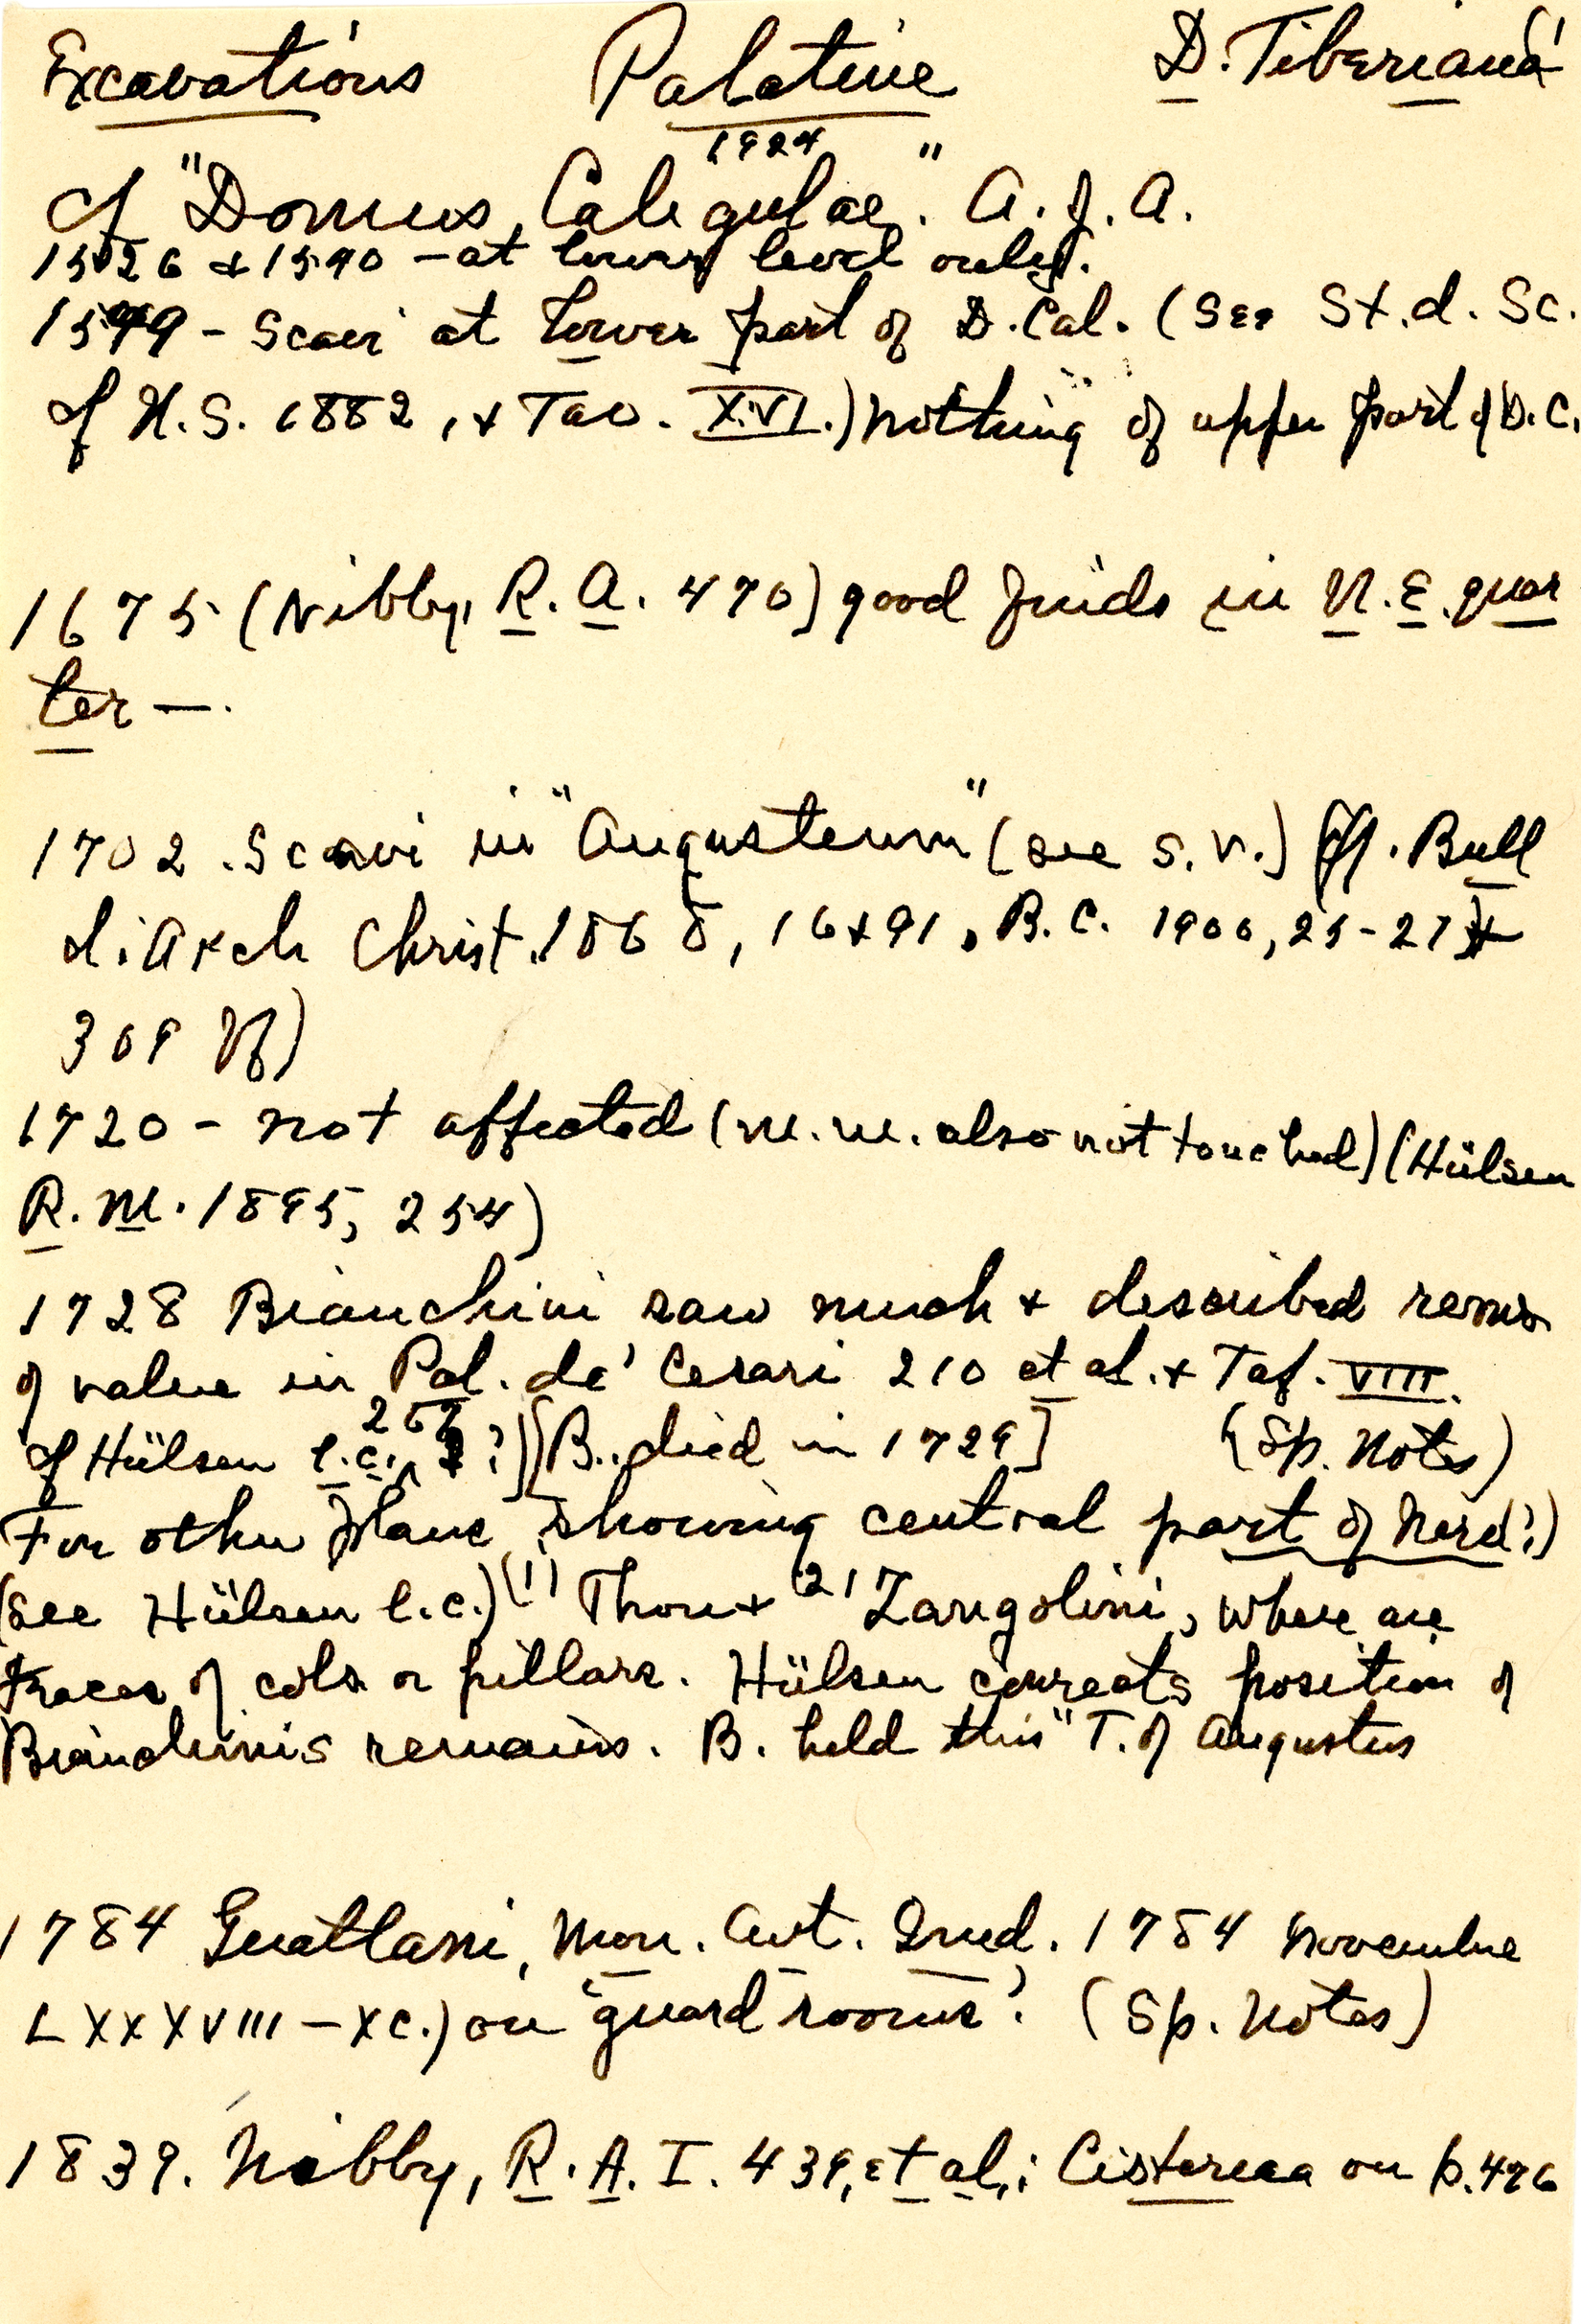 Excavations Palatine D. Tiberiana
1924
cf "Domus Caligulae." A. J. A.
1526 & 1590 - at lower level only.
1549 - Scavi at Lower part of D. Cal. (See St. d. Sc.
of N. S. 1882, & Tav. XVI.) nothing of upper part of D.C.
1675 (Nibby, R. A. 470) good finds in N. E. quar
ter —.
1702. Scavi in "Augusteum" (see s. v.) Cf. Bull
di Arch Christ. 1868, 16 & 91, B. C. 1900, 25-27 &
309 ff)
1720 - not affected (m. m. also not touched) (Hülsen
R. M. 1895, 254)
1728 Bianchini saw much & described rems
of value in Pal. de' Cesari 210 et al. & Taf. VIII.
cf Hülsen l.c., ?)[B. died in 1729] (Sp. Notes)
For other plans showing central part of
(see Hülsen l.c.) (1) Thon & (2) Zangolini, where are
traces of cols or pillars. Hülsen corrects position of
Bianchinis remains. B. held this "T. of Augustus
1784 Guattani, Mon. Ant. Ined. 1784 novembre
LXXXVIII - XC.) on 'guard rooms'. (Sp. Notes)
1839. Nibby, R. A. I. 439, et al,; on p. 476